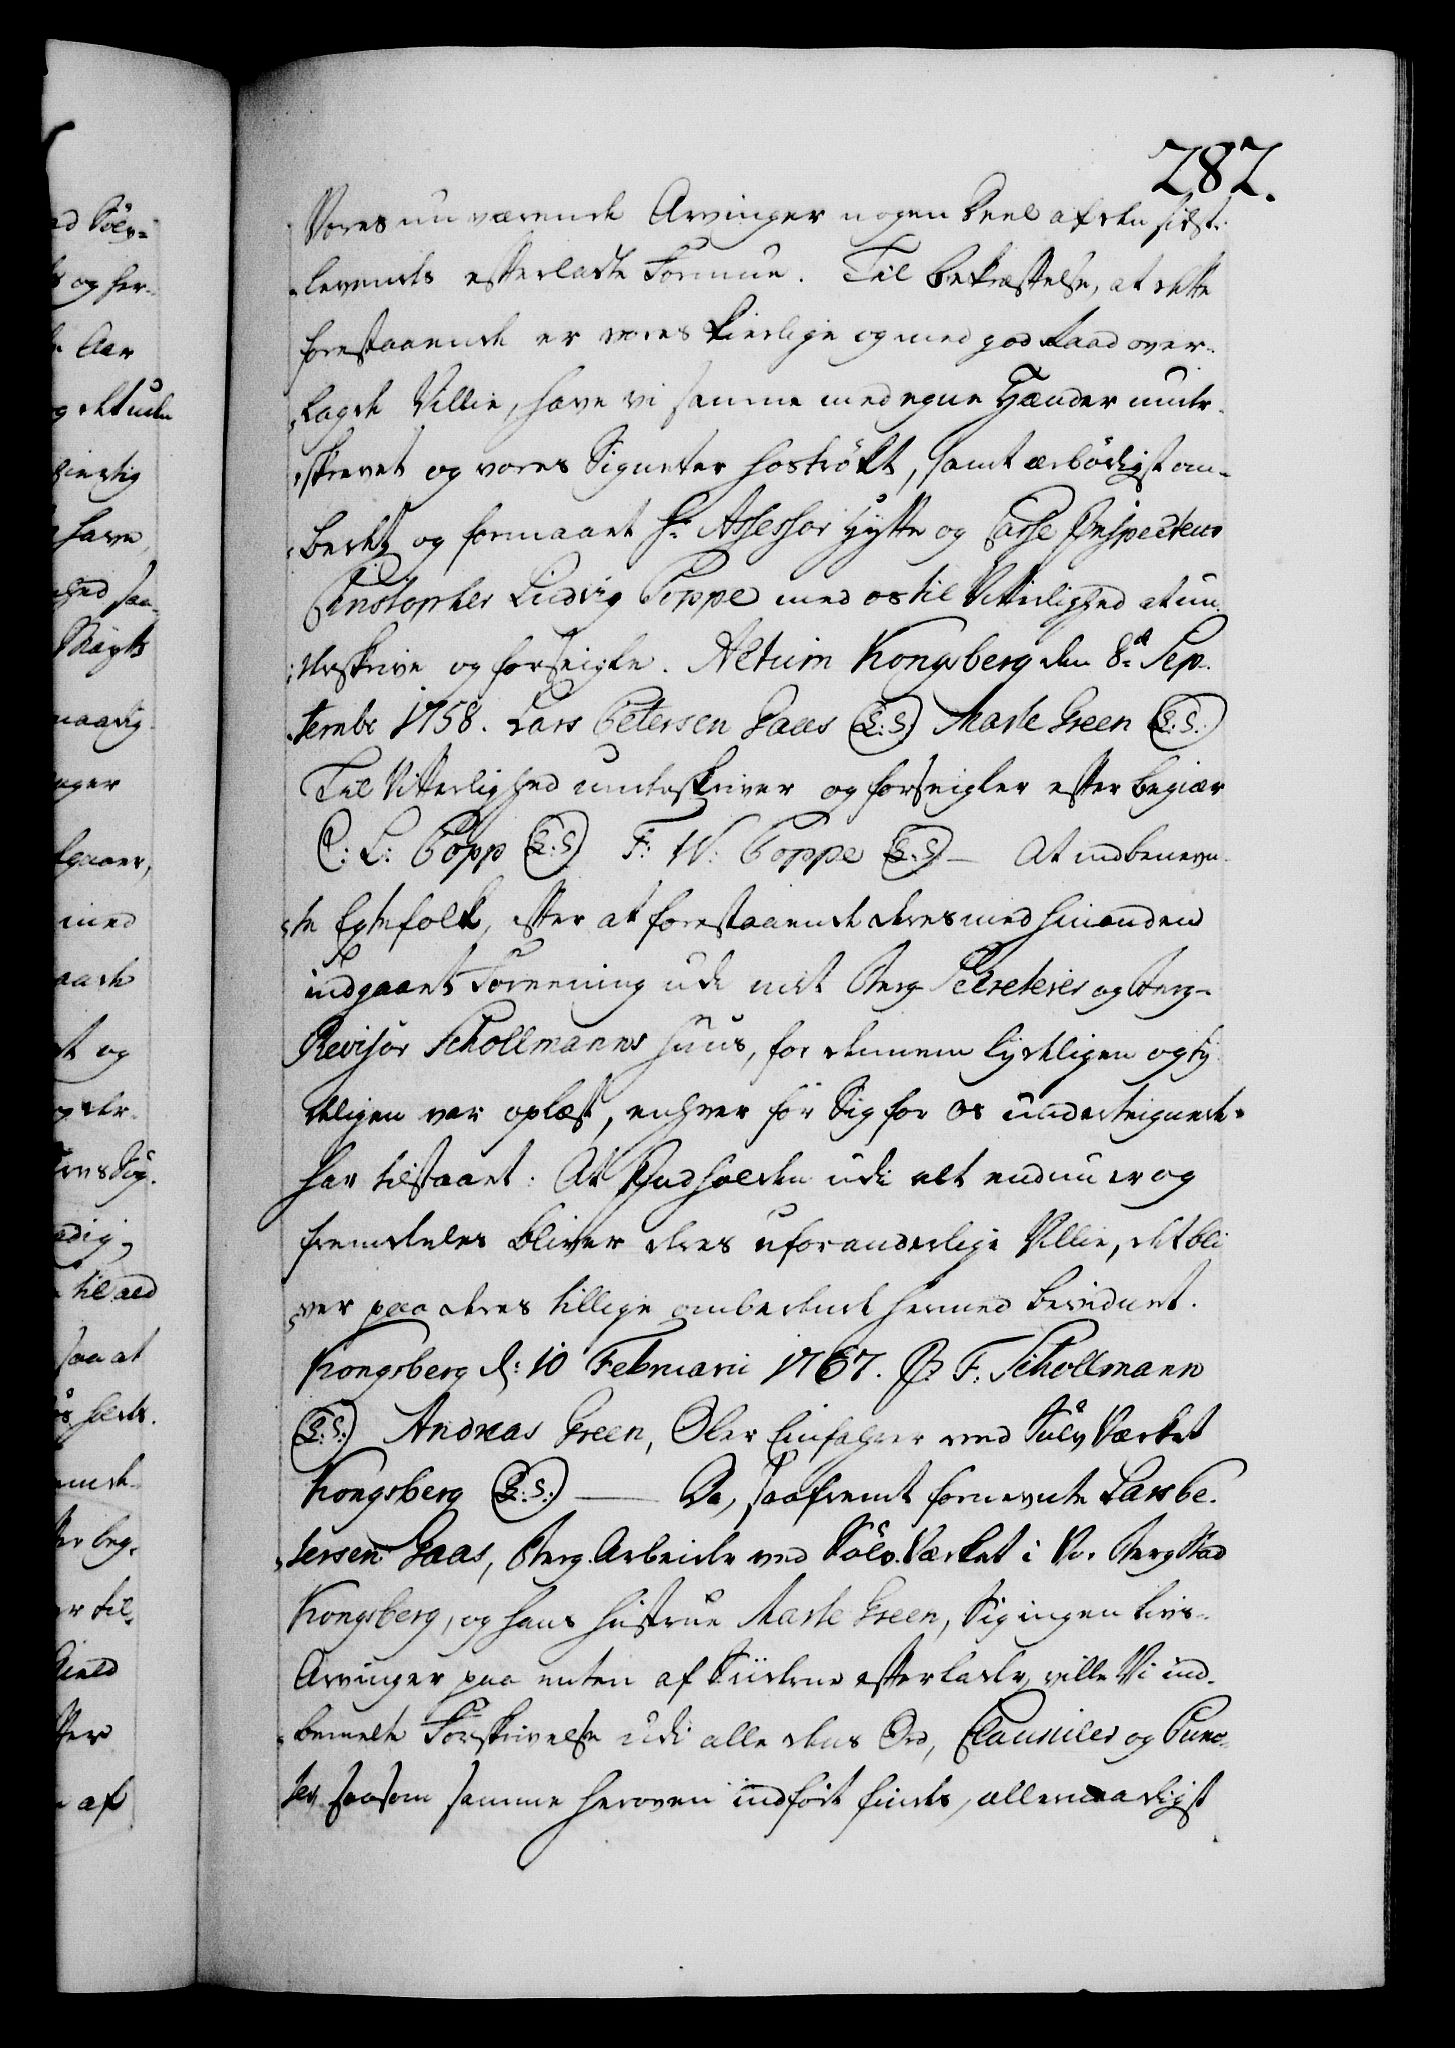 282.
Vores nu værende Arvinger nogen Deel af den sidst-
levendes efterladte Formue. Til Bekræftelse, at dette
forestaaende er vores kierlige og med god Raad over-
lagde Villie, have vi samme med egne Hænder under-
skrevet og vores Signeter hoströkt, samt ærbödigst om-
bedet og formaaet Hr. Assessor Hytte og Casse Inspecteur
Christopher Ludvig Poppe med os til Vitterlighed at un-
derskrive og forseigle. Actum Kongsberg den 8de Sep-
tembr 1758. Lars Petersen Gaas (L:S:) Marte Green (L:S:)
Til Vitterlighed underskriver og forseigler efter begiær
C: L: Popp (L:S) F: W: Poppe (L:S) — At indbenevn-
te Egtefolk, efter at forestaaende deres med hinanden
indgaaet Foreening udi mit Berg Secreterer og Berg-
Revisor Schollmanns Huus, for dennem lydeligen og ty-
deligen var oplæst, enhver för Sig for os underteignede
har tilstaaet: At Indholden udi alt endnu er og
fremdeles bliver deres uforanderlige Villie, det bli
ver paa deres tillige ombedende hermed bevidnet.
Kongsberg d: 10 Februarii 1767. P. F. Schollmann
(L:S:) Andreas Green, Ober Einfahrer ved Sölv Værket
Kongsberg (L:S:) — Da, saafremt fornevnte Lars Pe-
tersen Gaas, Berg-Arbeider ved Sölv-Værket i Vor Berg Stad
Kongsberg, og hans Hustrue Marte Green, Sig ingen Livs-
Arvinger paa enten af Siiderne efterlader, ville Vi ind-
bemelte Forskrivelse udi alle dens Ord, Clausuler og Punc-
ter saasom samme heroven indfört findes, allernaadigst